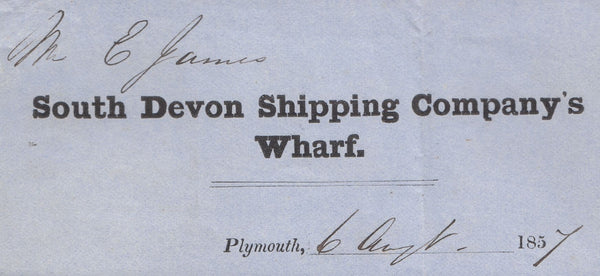 Mr E James
South Devon Shipping Company's
Wharf.
Plymouth, 6 Augt. 1857